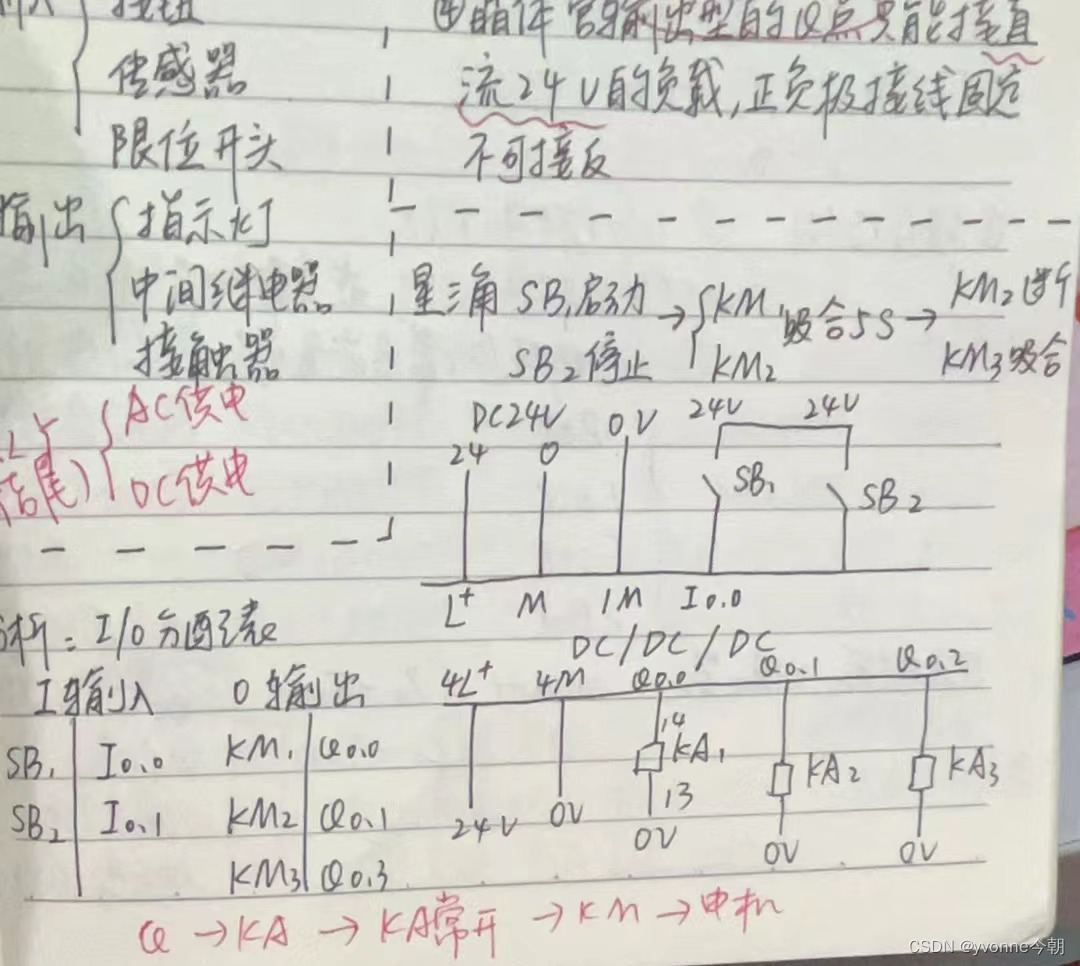 按钮
④晶体管输出型的Q点只能接直
传感器
流24V的负载,正负极接线固定
限位开关
不可接反
输出
指示灯
中间继电器
接触器
星三角 SB1启动 → KM1 吸合5S → KM2断
SB2停止 KM2 KM3吸合
AC供电
结尾)
DC供电
DC24V 0V 24V 24V
24 0
SB1 SB2
L+ M 1M I0.0
DC/DC/DC
析: I/O分配表
I输入 O输出
SB1 I0.0 KM1 Q0.0
SB2 I0.1 KM2 Q0.1
KM3 Q0.3
4L+ 4M Q0.0 Q0.1 Q0.2
14
KA1 KA2 KA3
13
24V 0V 0V 0V 0V
Q → KA → KA常开 → KM → 电机
CSDN @yvonne今朝